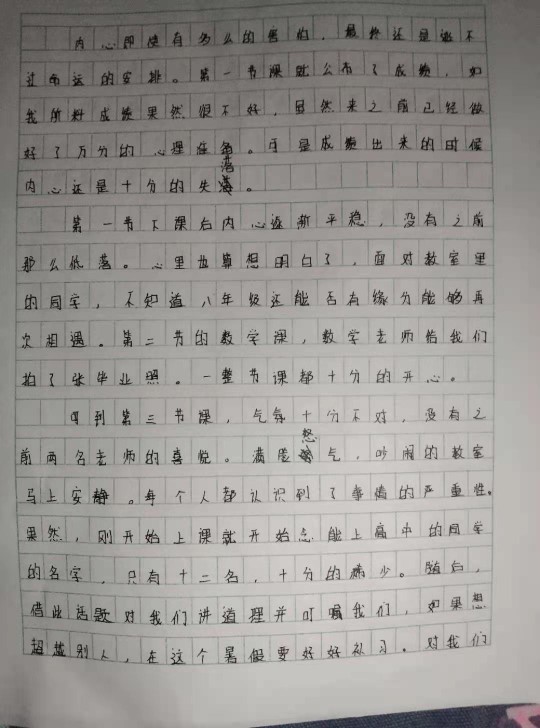 内心即使有多么的害怕，最终还是逃不
过命运的安排。第一节课就公布了成绩，如
我所料成绩果然很不好，虽然来之前已经做
好了万分的心理准备。可是成绩出来的时候
内心还是十分的失落。
第一节下课后内心逐渐平稳，没有之前
那么低落。心里也算想明白了，面对教室里
的同学，不知道八年级还能否有缘分能够再
次相遇。第二节的数学课，数学老师给我们
拍了张毕业照。一整节课都十分的开心。
可到第三节课，气氛十分不对，没有之
前两名老师的喜悦。满是怒气，吵闹的教室
马上安静。每个人都认识到了事情的严重性。
果然，刚开始上课就开始念能上高中的同学
的名字，只有十二名，十分的稀少。随后，
借此话题对我们讲道理并叮嘱我们，如果想
超越别人，在这个暑假要好好补习。对我们